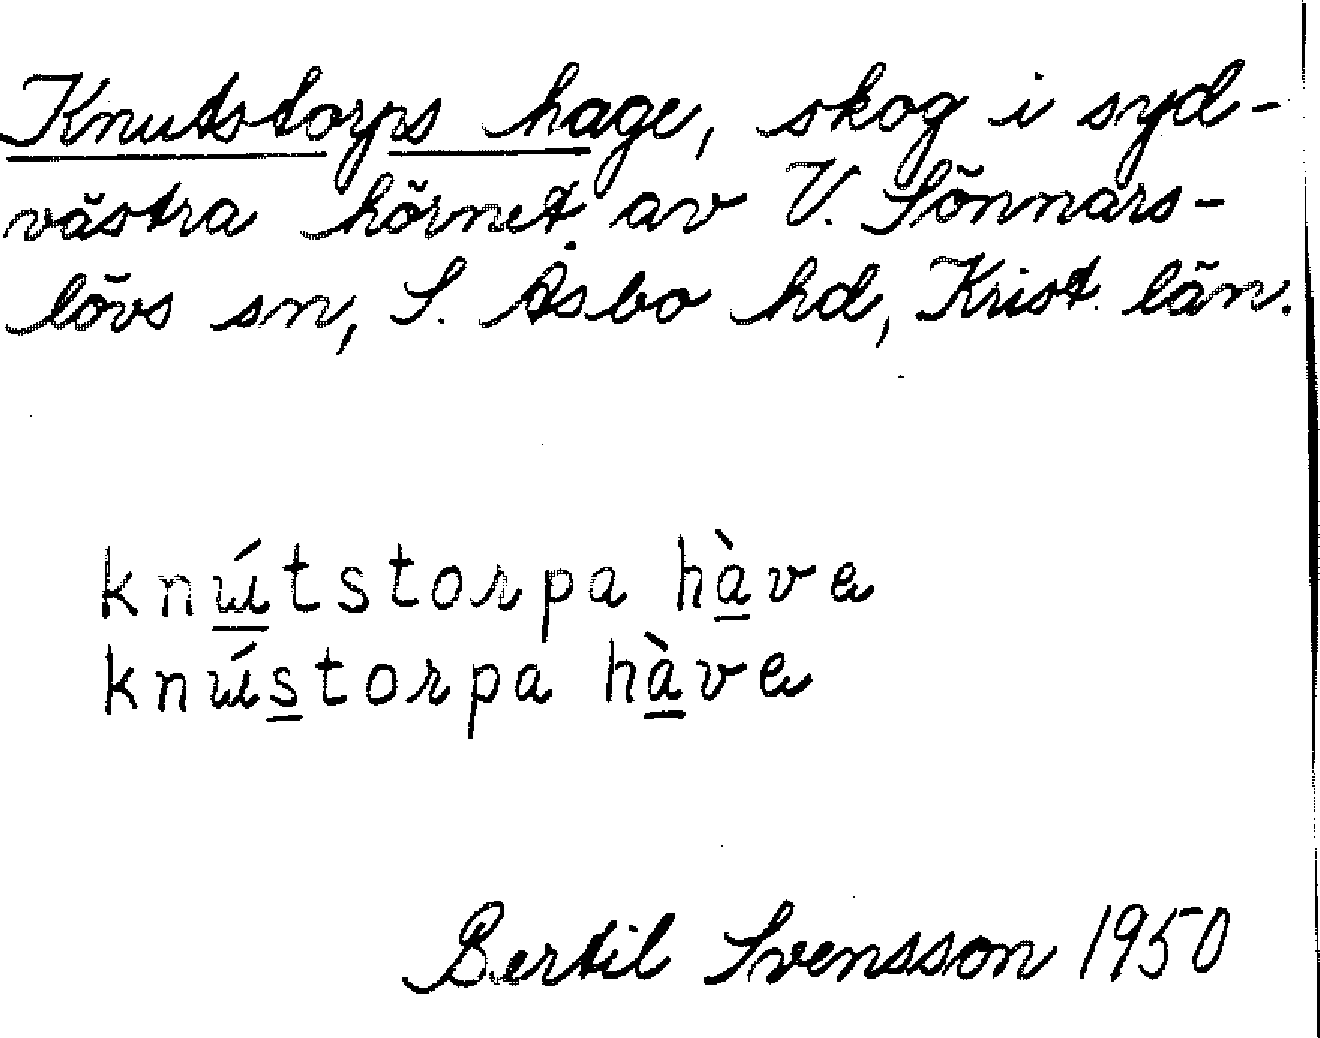 Knutstorps hage, skog i syd-
västra hörnet av V. Sönnars-
lövs sn, S. Åsbo hd, Krist. län.
knútstorpa hàve
knústorpa hàve
Bertil Svensson 1950